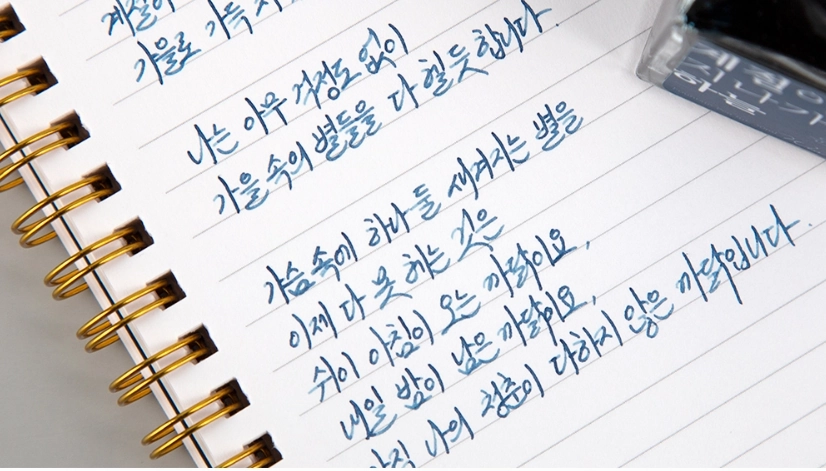 계절이
가을로 가득 차
나는 아무 걱정도 없이
가을 속의 별들을 다 헬 듯합니다.
가슴속에 하나 둘 새겨지는 별을
이제 다 못 헤는 것은
쉬이 아침이 오는 까닭이요,
내일 밤이 남은 까닭이요,
아직 나의 청춘이 다하지 않은 까닭입니다.
계절이
지나가